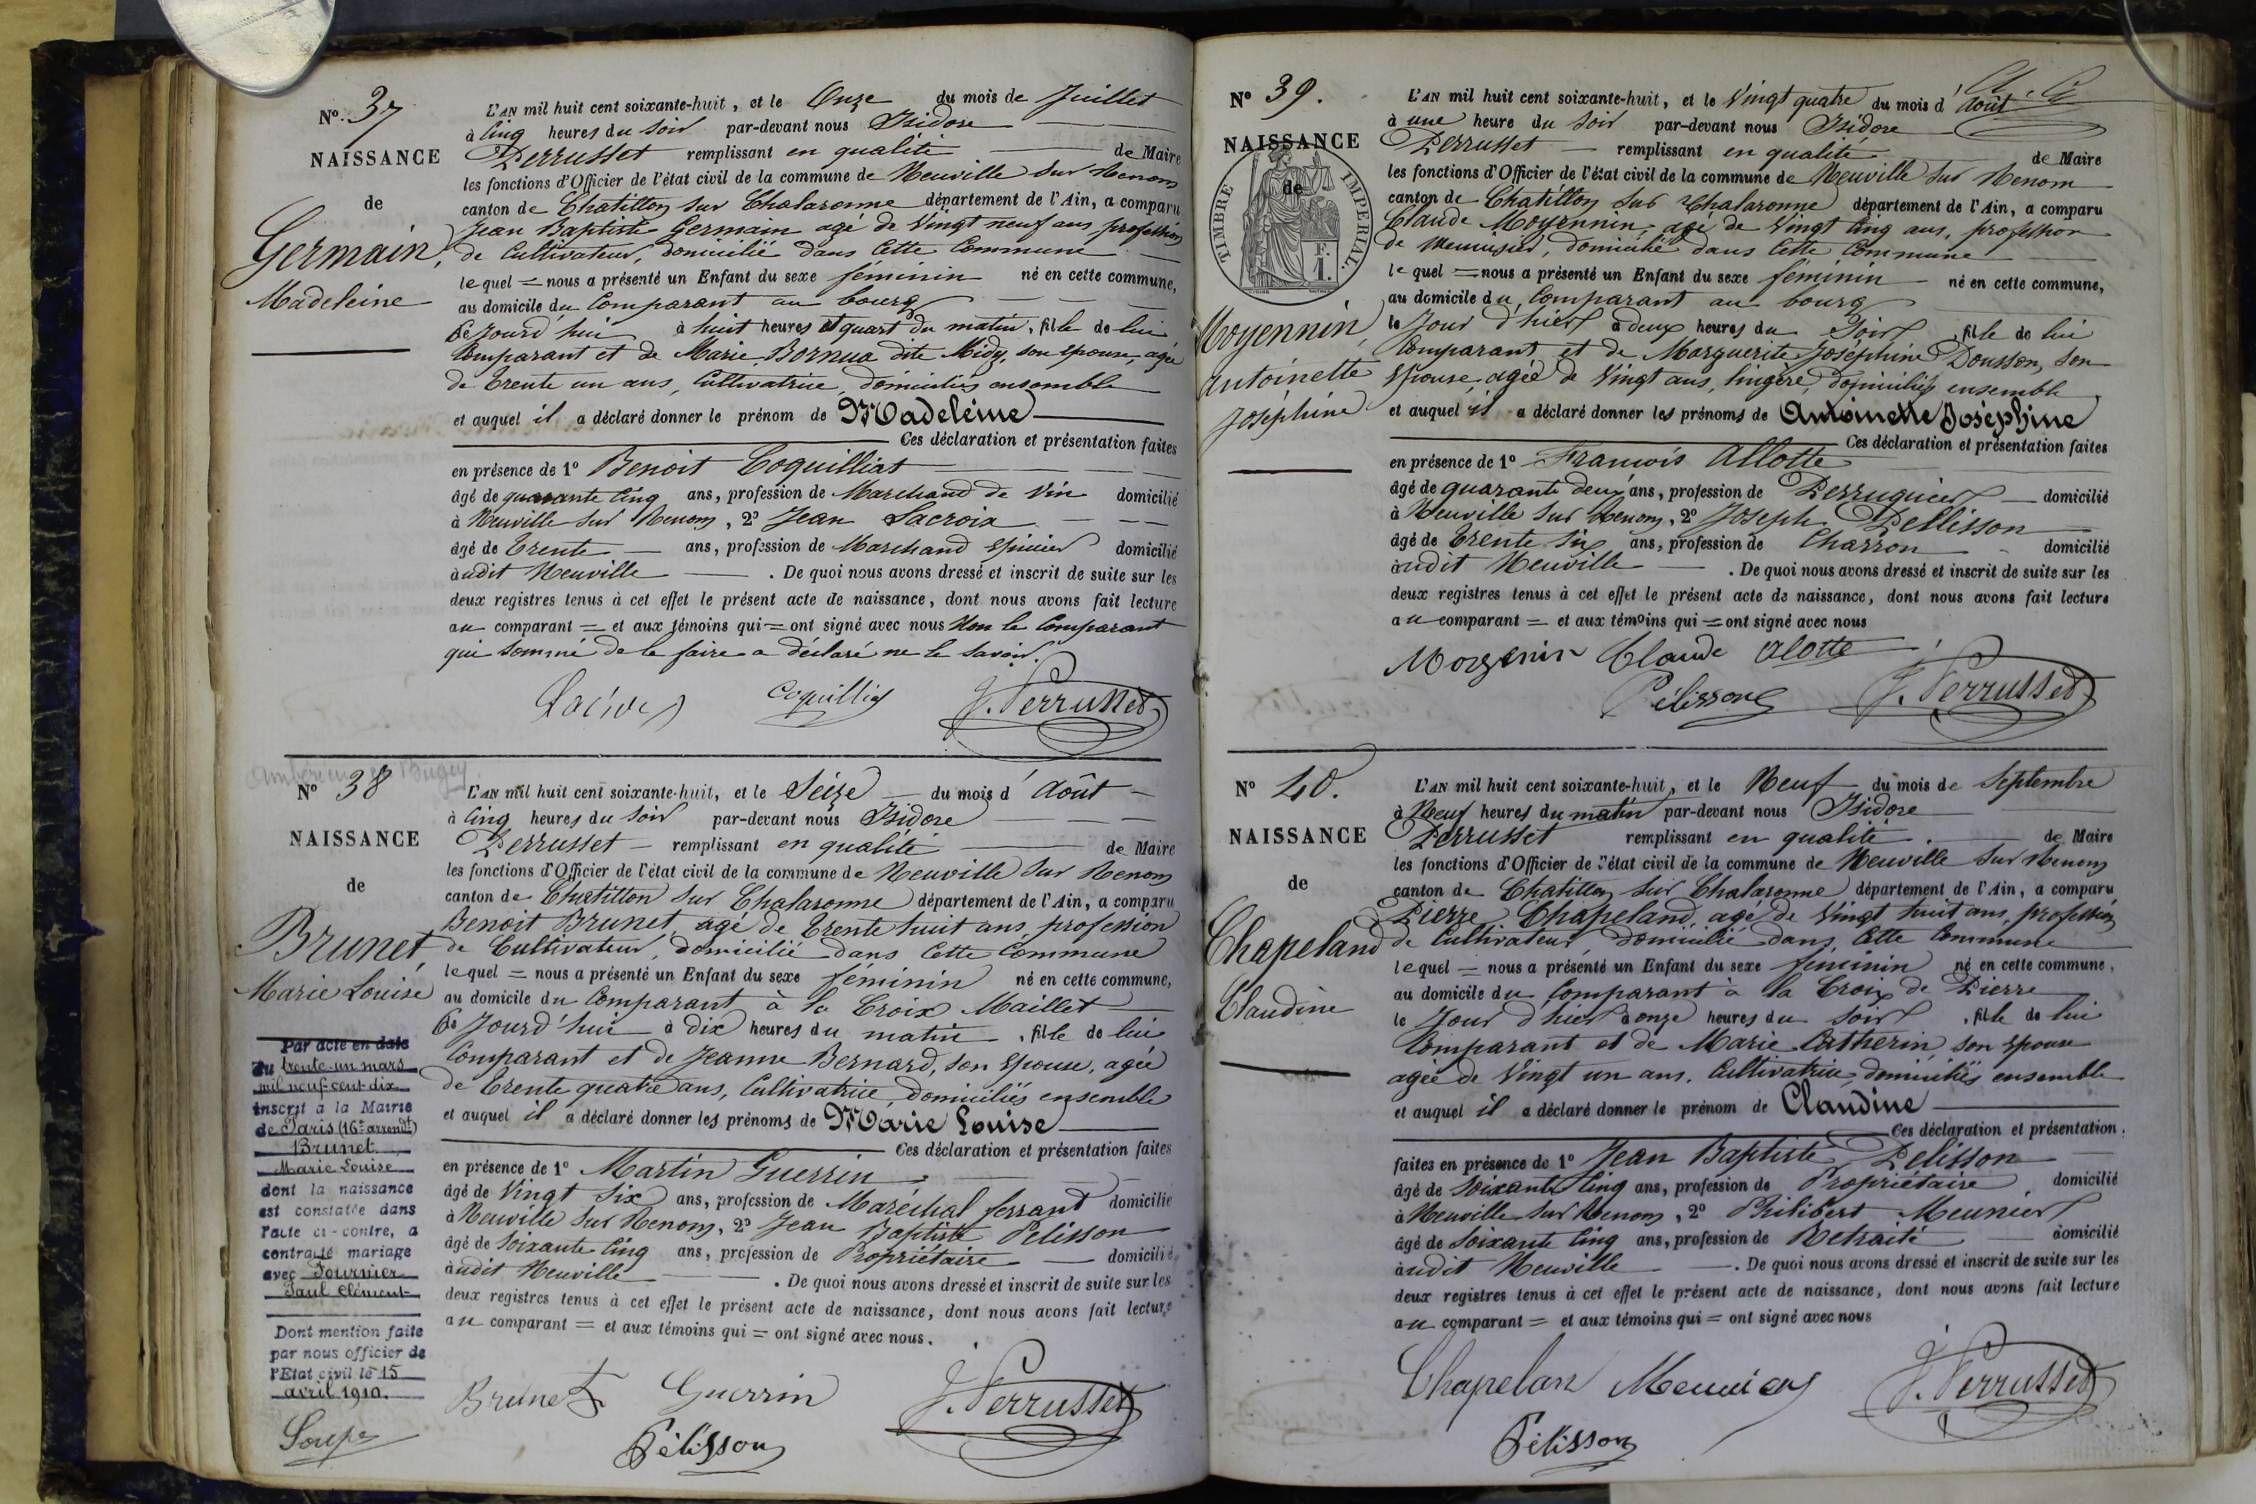 N° 37
NAISSANCE
de
Germain,
Madeleine
L'AN mil huit cent soixante-huit, et le Onze du mois de Juillet
à Cinq heures du Soir par-devant nous Isidore
Perrusset remplissant en qualité de Maire
les fonctions d'Officier de l'état civil de la commune de Neuville sur Renom
canton de Chatillon sur Chalaronne département de l'Ain, a comparu
Jean Baptiste Germain agé de Vingt neuf ans, profession
de Cultivateur, domicilié dans Cette Commune
lequel = nous a présenté un Enfant du sexe féminin né en cette commune,
au domicile du Comparant au bourg
Ce Jourd'hui à huit heures et quart du matin, fille de lui
Comparant et de Marie Bornua dite Midy, son épouse, agée
de Trente un ans, Cultivatrice, domiciliés ensemble
et auquel il a déclaré donner le prénom de Madeleine
Ces déclaration et présentation faites
en présence de 1° Benoit Coquilliat
âgé de quarante Cinq ans, profession de Marchand de Vin domicilié
à Neuville sur Renom, 2° Jean Lacroix
âgé de Trente ans, profession de Marchand épicier domicilié
àudit Neuville . De quoi nous avons dressé et inscrit de suite sur les
deux registres tenus à cet effet le présent acte de naissance, dont nous avons fait lecture
au comparant = et aux témoins qui = ont signé avec nous Non le Comparant
qui sommé de le faire a déclaré ne le savoir.
Coquilliat J. Perrusset
N° 38
NAISSANCE
de
Brunet,
Marie Louise
Par acte en date
du trente-un mars
mil neuf cent dix
inscrit à la Mairie
de Paris (16e arrondt)
Brunet
Marie Louise
dont la naissance
est constatée dans
l'acte ci-contre, a
contracté mariage
avec Fournier
Paul Clément
Dont mention faite
par nous officier de
l'Etat civil le 15
avril 1910.
Soupe
L'AN mil huit cent soixante-huit, et le Seize du mois d'Août
à Cinq heures du Soir par-devant nous Isidore
Perrusset remplissant en qualité de Maire
les fonctions d'Officier de l'état civil de la commune de Neuville sur Renom
canton de Chatillon sur Chalaronne département de l'Ain, a comparu
Benoit Brunet, agé de Trente huit ans, profession
de Cultivateur, domicilié dans Cette Commune
lequel = nous a présenté un Enfant du sexe féminin né en cette commune,
au domicile du Comparant à la Croix Maillet
Ce Jourd'hui à dix heures du matin, fille de lui
Comparant et de Jeanne Bernard, son épouse, agée
de Trente quatre ans, Cultivatrice, domiciliés ensemble
et auquel il a déclaré donner les prénoms de Marie Louise
Ces déclaration et présentation faites
en présence de 1° Martin Guerrin
âgé de Vingt six ans, profession de Maréchal ferrant domicilié
à Neuville sur Renom, 2° Jean Baptiste Pelisson
âgé de Soixante Cinq ans, profession de Propriétaire domicilié
àudit Neuville . De quoi nous avons dressé et inscrit de suite sur les
deux registres tenus à cet effet le présent acte de naissance, dont nous avons fait lecture
au comparant = et aux témoins qui = ont signé avec nous.
Brunet Guerrin J. Perrusset
Pélisson
N° 39.
NAISSANCE
de
TIMBRE IMPERIAL.
F.
1.
Moyennin,
Antoinette
Joséphine
L'AN mil huit cent soixante-huit, et le Vingt quatre du mois d'Août
à une heure du Soir par-devant nous Isidore
Perrusset remplissant en qualité de Maire
les fonctions d'Officier de l'état civil de la commune de Neuville sur Renom
canton de Chatillon sur Chalaronne département de l'Ain, a comparu
Claude Moyennin, agé de Vingt Cinq ans, profession
de Menuisier, domicilié dans Cette Commune
lequel = nous a présenté un Enfant du sexe féminin né en cette commune,
au domicile du Comparant au bourg
le Jour d'hier à deux heures du Soir, fille de lui
Comparant et de Marguerite Joséphine Dousson, son
épouse agée de Vingt ans, lingère, domiciliés ensemble
et auquel il a déclaré donner les prénoms de Antoinette Joséphine
Ces déclaration et présentation faites
en présence de 1° Francois Allotte
âgé de quarante deux ans, profession de Perruquier domicilié
à Neuville sur Renom, 2° Joseph Pellisson
âgé de Trente Six ans, profession de Charron domicilié
àudit Neuville . De quoi nous avons dressé et inscrit de suite sur les
deux registres tenus à cet effet le présent acte de naissance, dont nous avons fait lecture
au comparant = et aux témoins qui = ont signé avec nous
Moyenin Claude Alotte
Pélisson J. Perrusset
N° 40.
NAISSANCE
de
Chapeland
Claudine
L'AN mil huit cent soixante-huit, et le Neuf du mois de Septembre
à Neuf heures du matin par-devant nous Isidore
Perrusset remplissant en qualité de Maire
les fonctions d'Officier de l'état civil de la commune de Neuville sur Renom
canton de Chatillon sur Chalaronne département de l'Ain, a comparu
Pierre Chapeland, agé de Vingt huit ans, profession
de Cultivateur, domicilié dans Cette Commune
lequel = nous a présenté un Enfant du sexe féminin né en cette commune,
au domicile du Comparant à la Croix de Pierre
le Jour d'hier à onze heures du Soir, fille de lui
Comparant et de Marie Catherin, son épouse
agée de Vingt un ans, Cultivatrice, domiciliés ensemble
et auquel il a déclaré donner le prénom de Claudine
Ces déclaration et présentation
faites en présence de 1° Jean Baptiste Pelisson
âgé de Soixante Cinq ans, profession de Propriétaire domicilié
à Neuville sur Renom, 2° Philibert Meunier
âgé de Soixante Cinq ans, profession de Retraité domicilié
àudit Neuville . De quoi nous avons dressé et inscrit de suite sur les
deux registres tenus à cet effet le présent acte de naissance, dont nous avons fait lecture
au comparant = et aux témoins qui = ont signé avec nous
Chapelan Meunier J. Perrusset
Pélisson